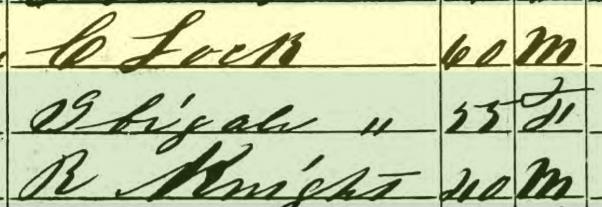 C Lock 60 M
Abigale " 55 F
R Knight 40 M